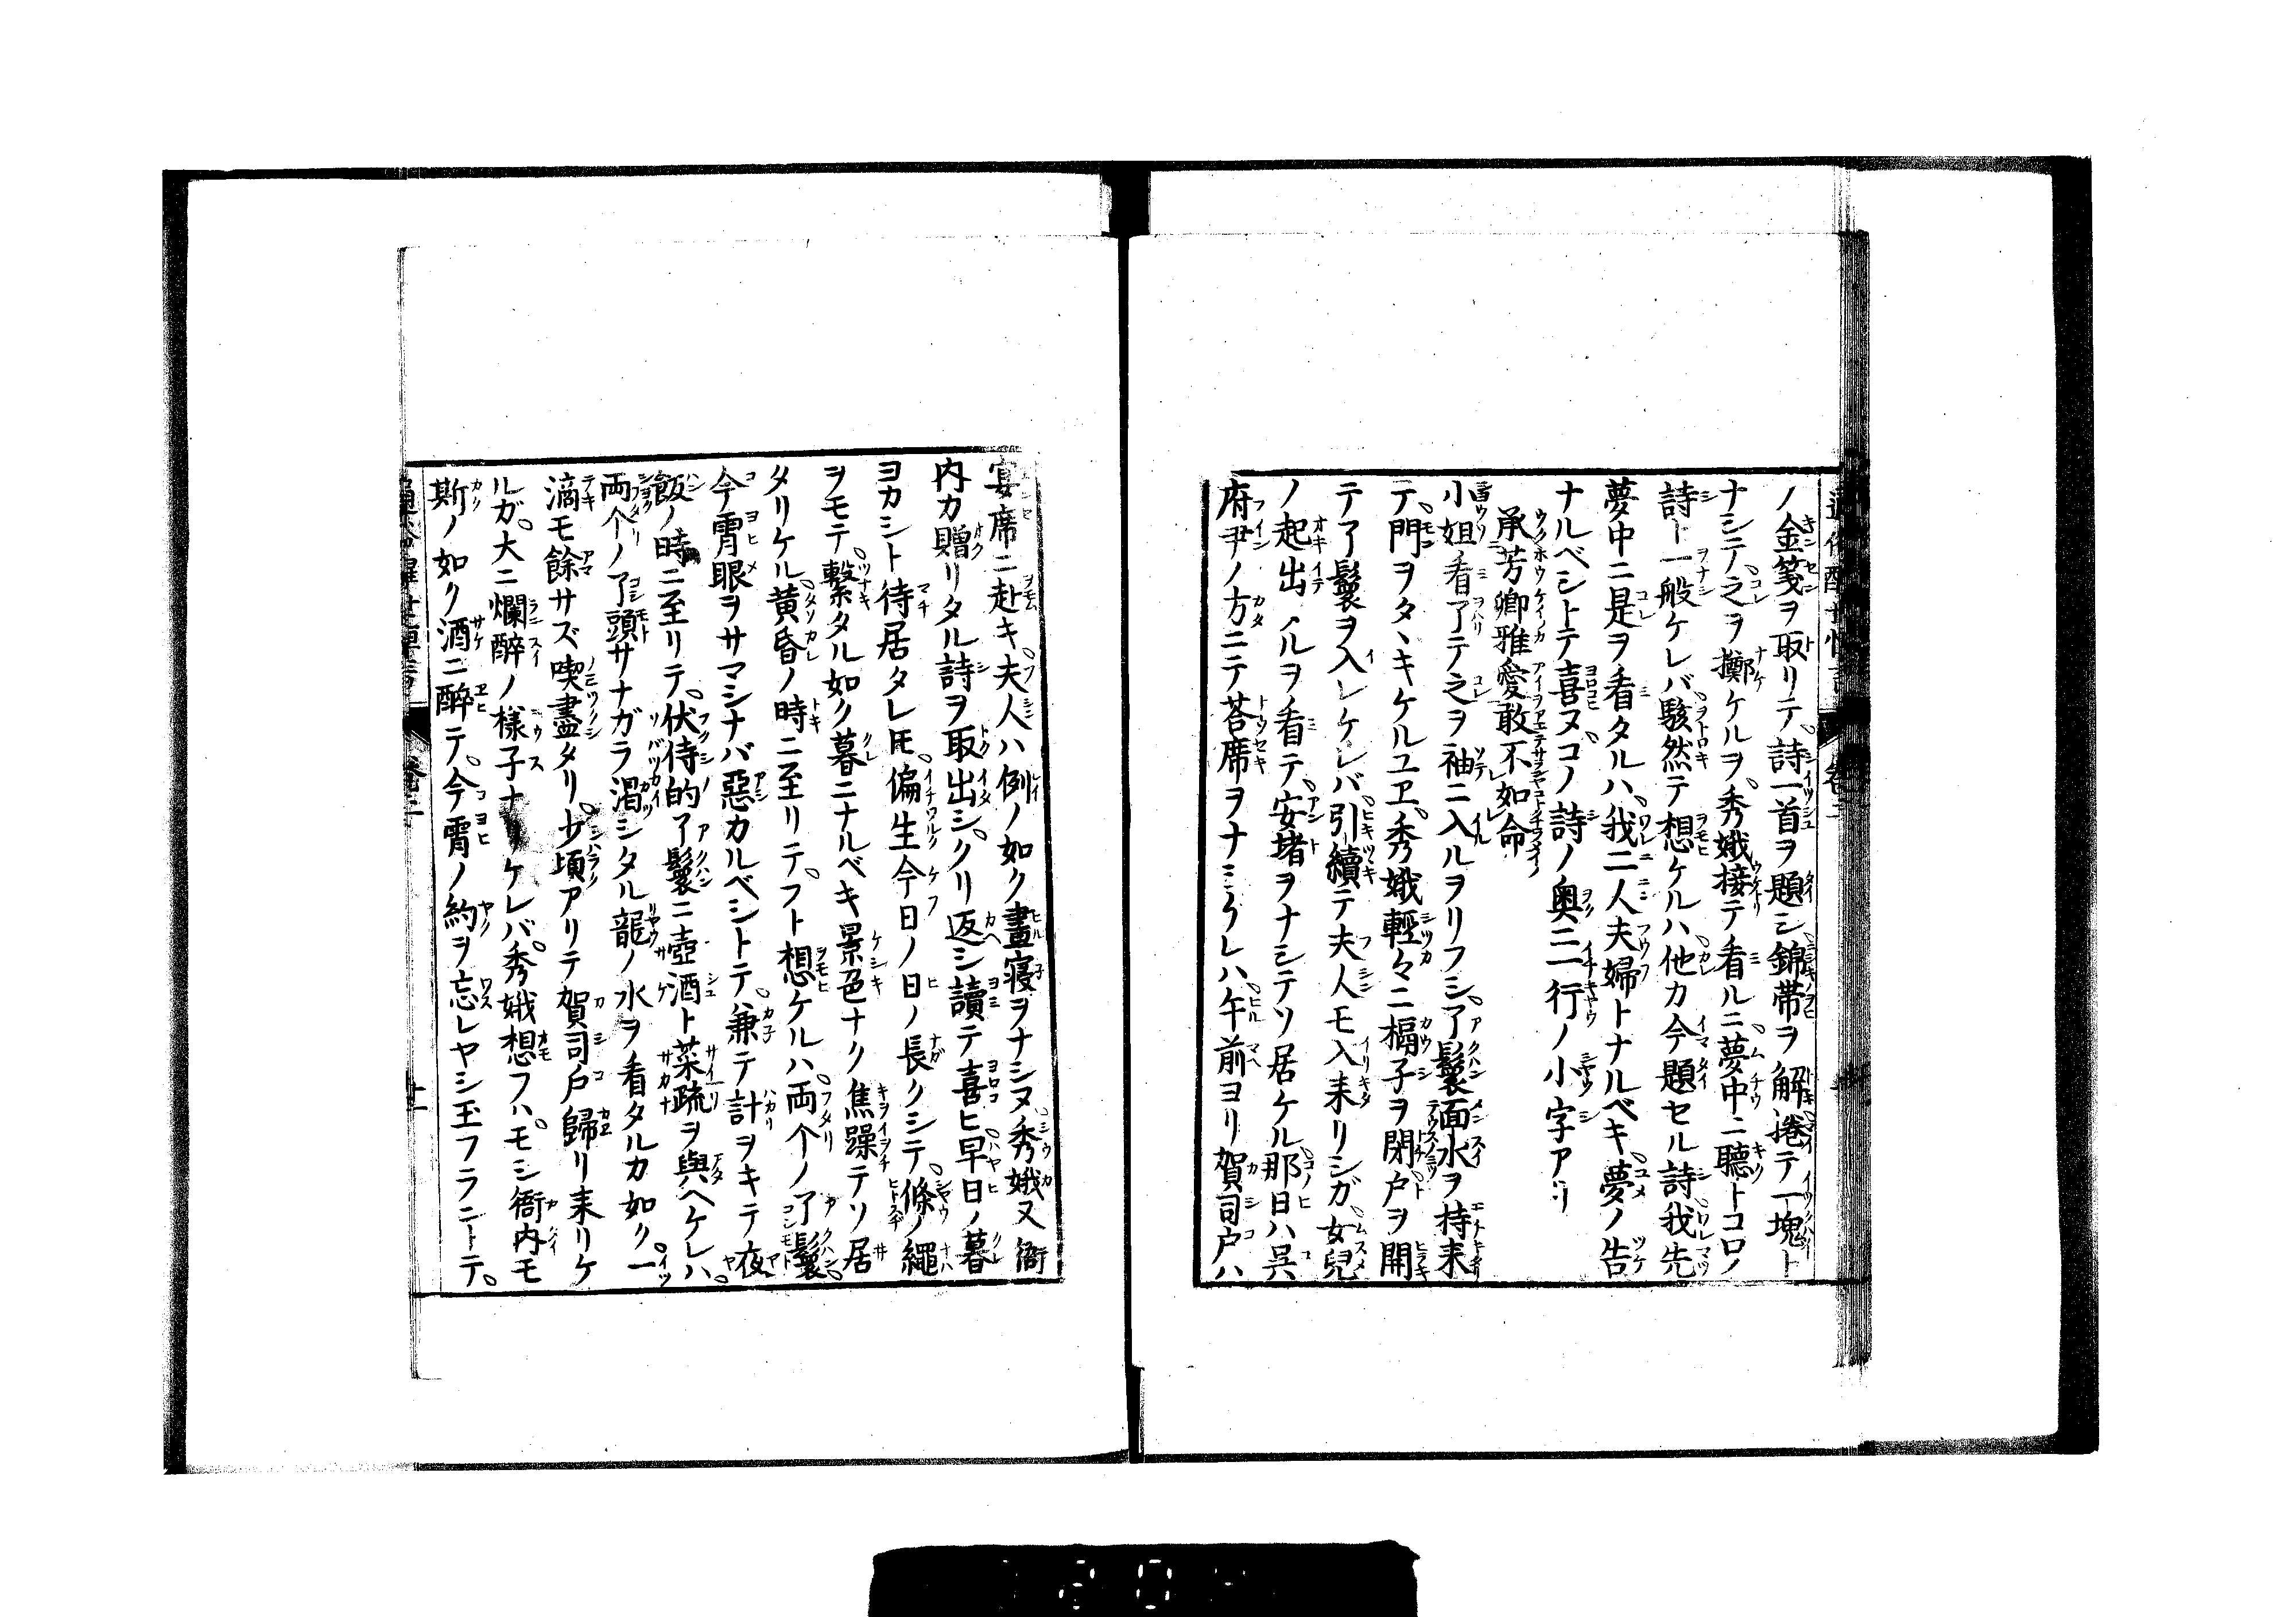 ノ金箋ヲ取リテ。詩一首ヲ題シ。錦帯ヲ解捲テ一塊ト
ナシテ。之ヲ擲ケルヲ。秀娥接テ看ルニ。夢中ニ聽トコロノ
詩ト一般ケレバ。駭然テ想ケルハ。他カ今題セル詩。我先
夢中ニ是ヲ看タルハ。我二人夫婦トナルベキ。夢ノ告
ナルベシトテ喜ヌ。コノ詩ノ奥ニ一行ノ小字アリ
承芳卿雅愛敢不如命
小姐看了テ之ヲ袖ニ入ルヲリフシ。了鬟面水ヲ持来
テ。門ヲタヽキケルユヱ。秀娥輕々ニ槅子ヲ閉。戸ヲ開
テ了鬟ヲ入レケレバ。引續テ夫人モ入来リシガ。女兒
ノ起出ノルヲ看テ。安堵ヲナシテソ居ケル。那日ハ呉
府尹ノ方ニテ荅席ヲナシクレハ。午前ヨリ賀司戸ハ
宴席ニ赴キ。夫人ハ例ノ如ク晝寝ヲナシヌ。秀娥又衙
内カ贈リタル詩ヲ取出シ。クリ返シ讀テ喜ヒ。早日ノ暮
ヨカシト待居タレ𪜈。偏生今日ノ日ノ長クシテ。條ノ繩
ヲモテ。繫タル如ク暮ニナルベキ景色ナク焦躁テソ居
タリケル。黄昏ノ時ニ至リテ。フト想ケルハ。両个ノ了鬟。
今霄眼ヲサマシナバ惡カルベシトテ。兼テ計ヲキテ夜
飯ノ時ニ至リテ。伏侍的了鬟ニ壺酒ト菜蔬ヲ與ヘケレハ。
両个ノ了頭サナガラ渇シタル龍ノ水ヲ看タルカ如ク。一
滴モ餘サズ喫盡タリ。少頃アリテ賀司戸歸リ来リケ
ルガ。大ニ爛醉ノ様子ナリケレバ。秀娥想フハ。モシ衙内モ
斯ノ如ク酒ニ醉テ。今霄ノ約ヲ忘レヤシ玉フラントテ。